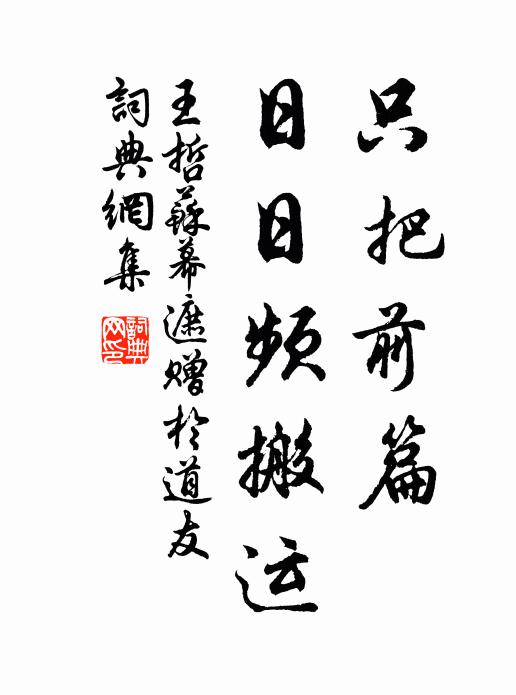 只把前篇
日日频搬运
王哲蘇幕遮赠於道友
詞典網集
詞典网印